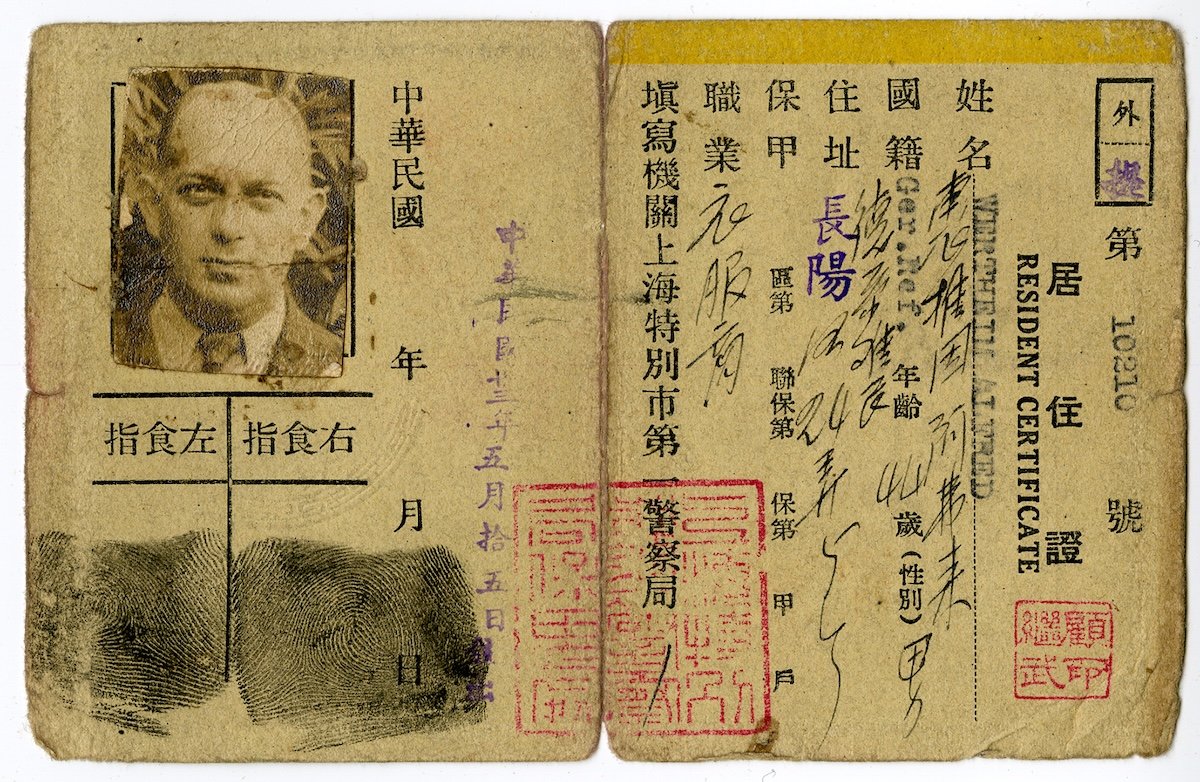 外
第 10210 號
居住證
RESIDENT CERTIFICATE
姓名
WERTHEIM ALFRED
國籍 德 年齡 44 歲 (性別) 男
Ger.Ref.
住址 長陽 24 弄
保甲 區第 聯保第 保第 甲 戶
職業 衣服商
填寫機關上海特別市第一警察局
顧繼武印
中華民國 年 月 日
中華民國卅三年五月拾五日
右食指
左食指